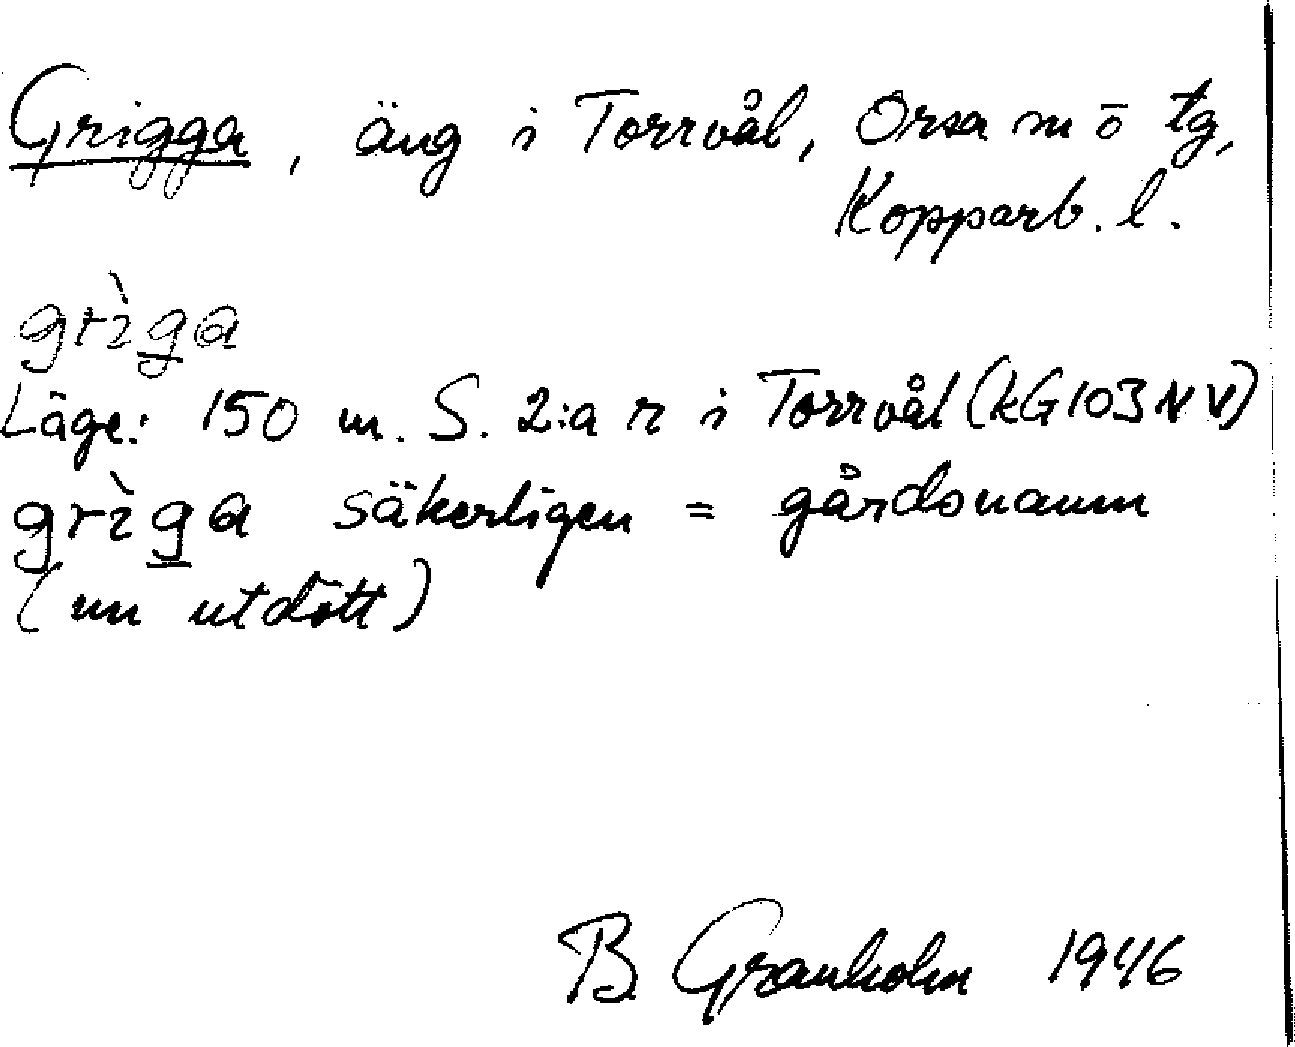 Grigga, äng i Torrvål, Orsa sn ō tg,
Kopparb. l.
grìga
Läge: 150 m. S. 2:a r i Torrvål (kG103NV)
grìga säkerligen = gårdsnamn
(nu utdött)
B. Granholm 1946